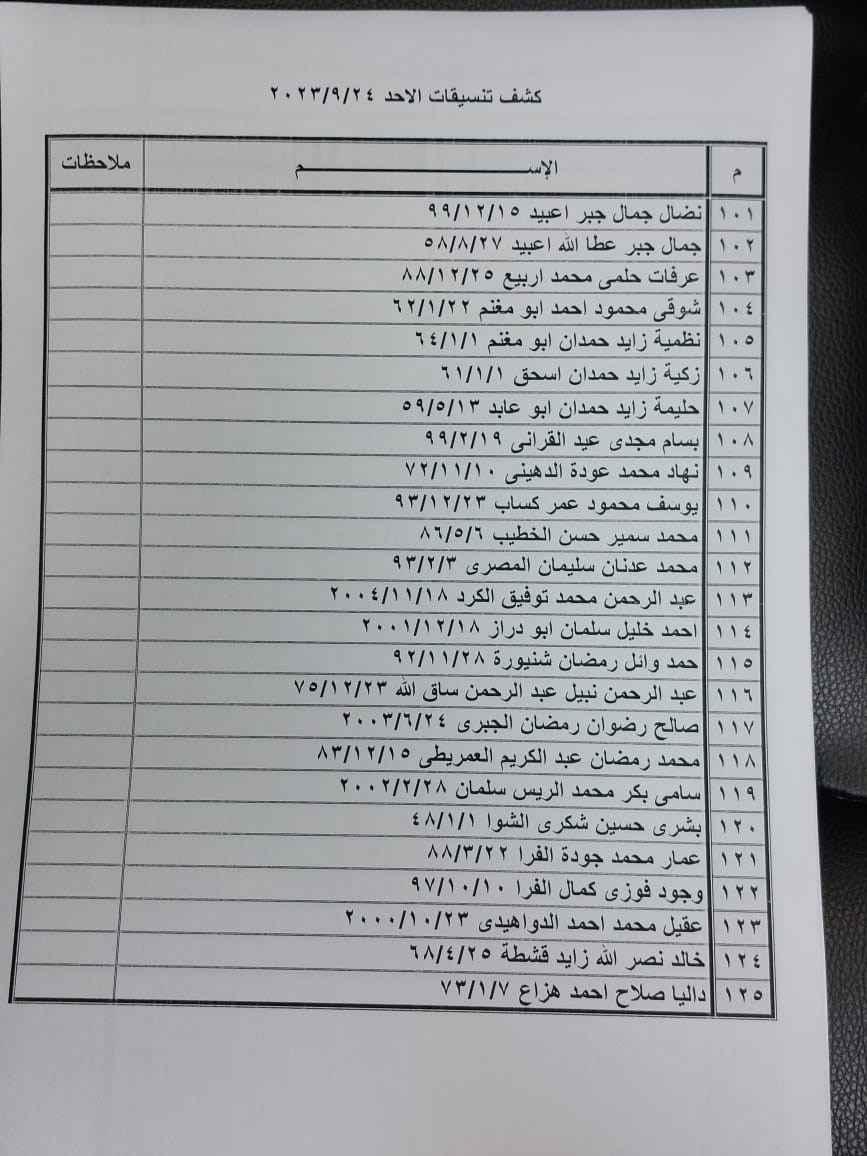 كشف تنسيقات الاحد ٢٠٢٣/٩/٢٤
م الإســــــــم ملاحظات
١٠١ نضال جمال جبر اعبيد ٩٩/١٢/١٥
١٠٢ جمال جبر عطا الله اعبيد ٥٨/٨/٢٧
١٠٣ عرفات حلمى محمد اربيع ٨٨/١٢/٢٥
١٠٤ شوقى محمود احمد ابو مغنم ٦٢/١/٢٢
١٠٥ نظمية زايد حمدان ابو مغنم ٦٤/١/١
١٠٦ زكية زايد حمدان اسحق ٦١/١/١
١٠٧ حليمة زايد حمدان ابو عابد ٥٩/٥/١٣
١٠٨ بسام مجدى عيد القرانى ٩٩/٢/١٩
١٠٩ نهاد محمد عودة الدهينى ٧٢/١١/١٠
١١٠ يوسف محمود عمر كساب ٩٣/١٢/٢٣
١١١ محمد سمير حسن الخطيب ٨٦/٥/٦
١١٢ محمد عدنان سليمان المصرى ٩٣/٢/٣
١١٣ عبد الرحمن محمد توفيق الكرد ٢٠٠٤/١١/١٨
١١٤ احمد خليل سلمان ابو دراز ٢٠٠١/١٢/١٨
١١٥ حمد وائل رمضان شنيورة ٩٢/١١/٢٨
١١٦ عبد الرحمن نبيل عبد الرحمن ساق الله ٧٥/١٢/٢٣
١١٧ صالح رضوان رمضان الجبرى ٢٠٠٣/٦/٢٤
١١٨ محمد رمضان عبد الكريم العمريطى ٨٣/١٢/١٥
١١٩ سامى بكر محمد الريس سلمان ٢٠٠٢/٢/٢٨
١٢٠ بشرى حسين شكرى الشوا ٤٨/١/١
١٢١ عمار محمد جودة الفرا ٨٨/٣/٢٢
١٢٢ وجود فوزى كمال الفرا ٩٧/١٠/١٠
١٢٣ عقيل محمد احمد الدواهيدى ٢٠٠٠/١٠/٢٣
١٢٤ خالد نصر الله زايد قشطة ٦٨/٤/٢٥
١٢٥ داليا صلاح احمد هزاع ٧٣/١/٧